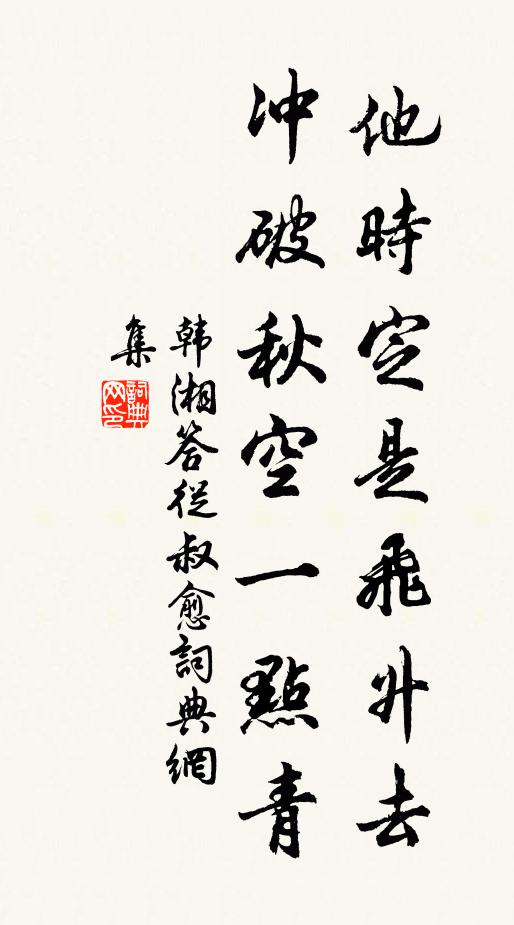 他時定是飛升去
冲破秋空一點青
韩湘答從叔愈詞典網
集
詞典
网印